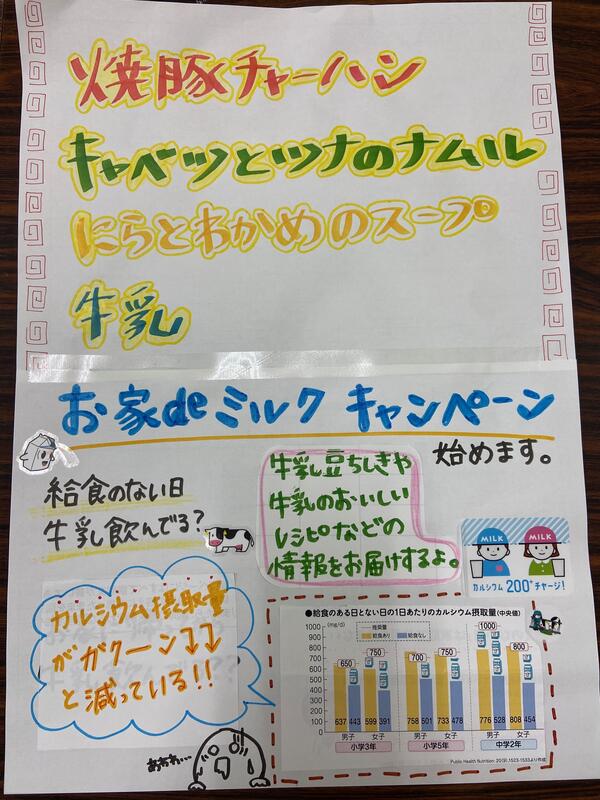 焼豚チャーハン
キャベツとツナのナムル
にらとわかめのスープ
牛乳
お家deミルク キャンペーン
始めます。
給食のない日
牛乳飲んでる?
牛乳豆ちしきや
牛乳のおいしい
レシピなどの
情報をお届けするよ。
MILK MILK
カルシウム 200%チャージ!
カルシウム摂取量
がガクーン↓↓
と減っている!!
あわわ...
●給食のある日とない日の1日あたりのカルシウム摂取量(中央値)
(mg/d)
推奨量
給食あり 給食なし
1000
900
800
700
600
500
400
300
200
100
0
650 750 700 750 1000 800
637 443 599 391 758 501 733 478 776 528 808 454
男子 女子 男子 女子 男子 女子
小学3年 小学5年 中学2年
Public Health Nutrition: 20(9),1523-1533より作成